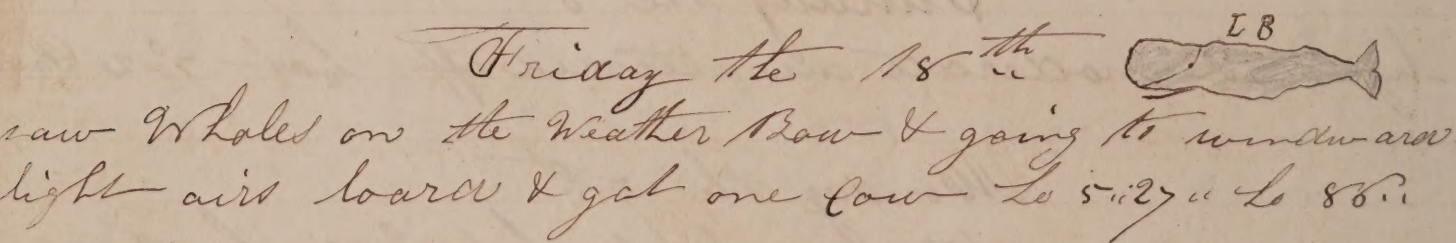 L B
Friday the 18th
saw Wholes on the Weather Bow & going to windward
light airs loard & got one Cow La 5..27.. Lo 86..